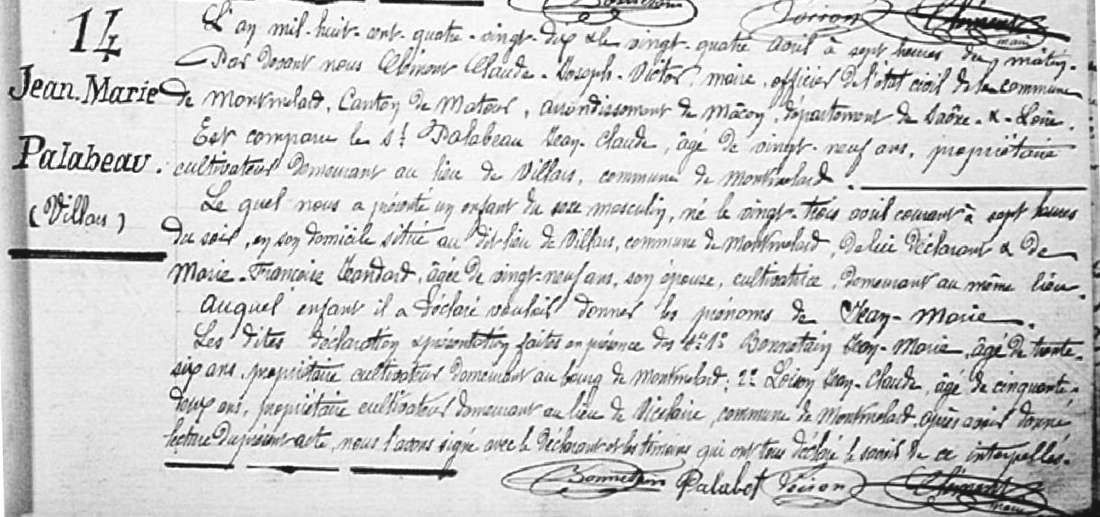 14
Jean-Marie
Palabeau.
(Villars)
L'an mil-huit-cent-quatre-vingt-dix & le vingt-quatre avril à sept heures du matin.
Par devant nous Clément Claude-Joseph-Victor, maire, officier de l'état civil de la commune
de Montmelard, Canton de Matour, arrondissement de Mâcon, département de Saône-&-Loire.
Est comparu le Sr. Palabeau Jean-Claude, âgé de vingt-neuf ans, propriétaire
cultivateur demeurant au lieu de Villars, commune de Montmelard.
Le quel nous a présenté un enfant du sexe masculin, né le vingt-trois avril courant à sept heures
du soir, en son domicile situé au dit-lieu de Villars, commune de Montmelard, de lui déclarant & de
Marie-Françoise Jeandard, âgée de vingt-neuf ans, son épouse, cultivatrice, demeurant au même lieu.
Auquel enfant il a déclaré vouloir donner les prénoms de Jean-Marie.
Les dites déclaration & présentation faites en présence des Srs 1° Bonnetain Jean-Marie, âgé de trente-
six ans, propriétaire cultivateur demeurant au bourg de Montmelard; 2° Jean-Claude, âgé de cinquante-
deux ans, propriétaire cultivateur demeurant au lieu de commune de Montmelard, après avoir donné
lecture du présent acte, nous l'avons signé avec le déclarant et les témoins qui ont tous déclaré le savoir de ce interpellés.
Bonnetain Palabot Voison Clément
maire